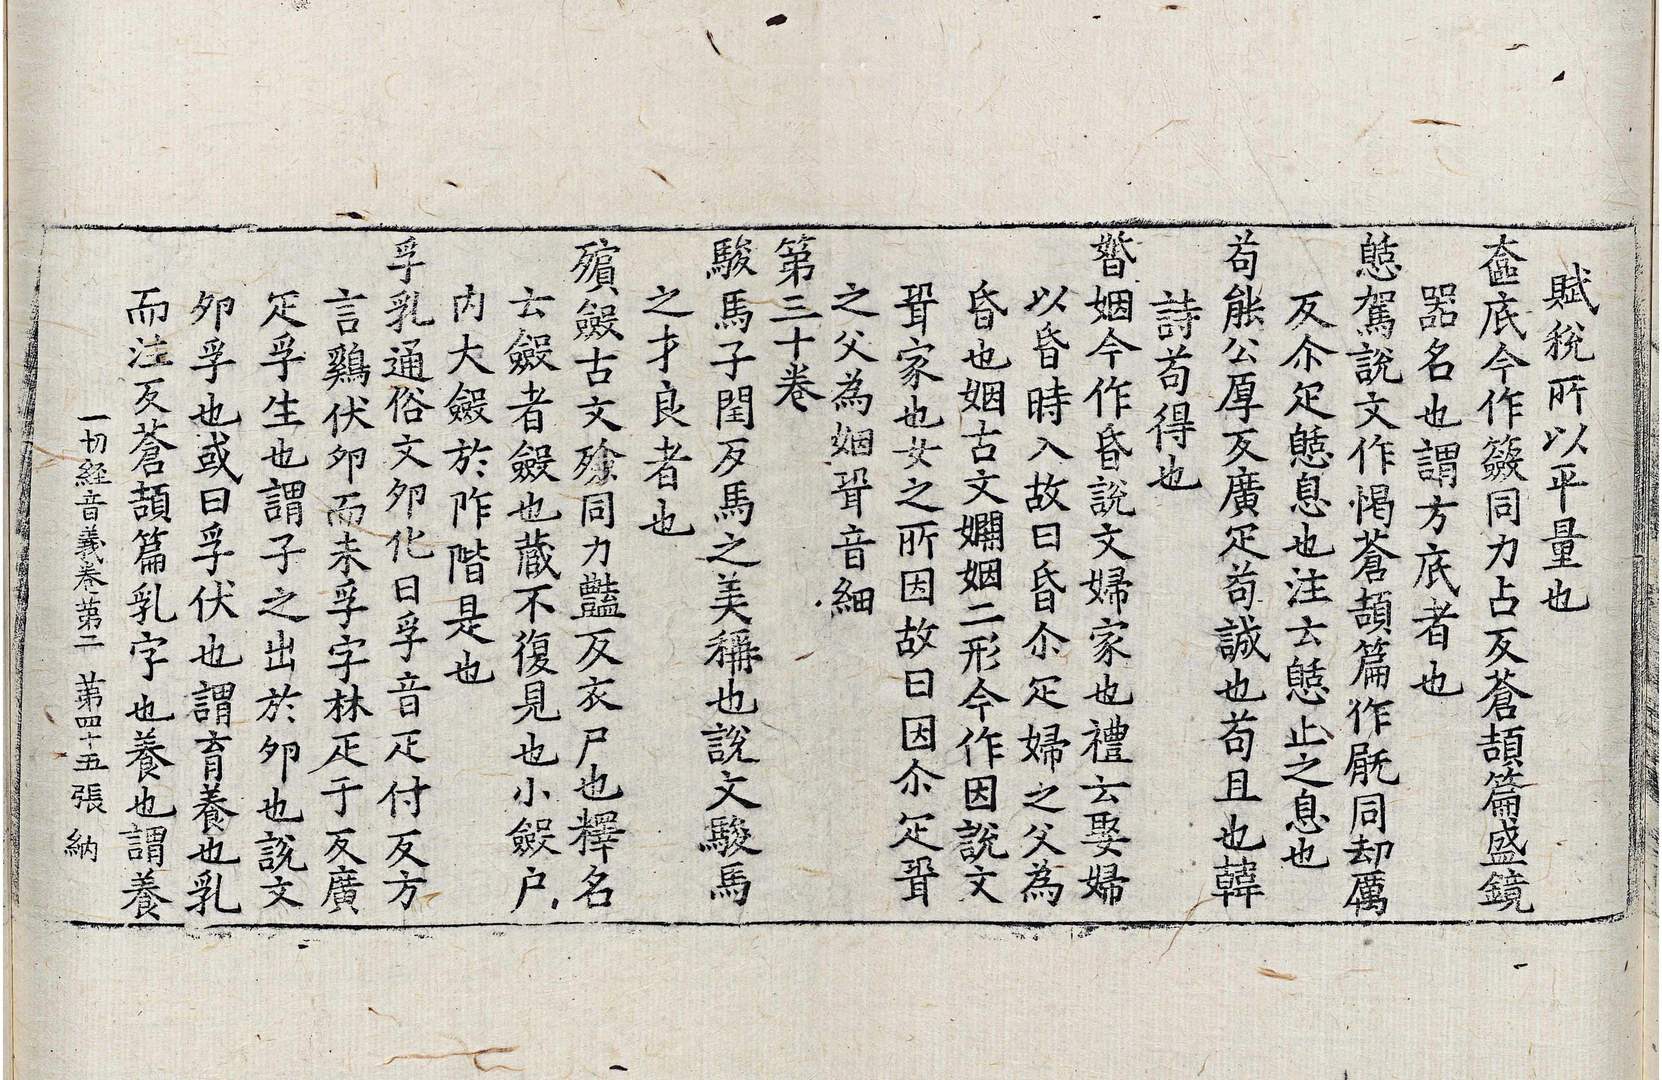 賦稅所以平量也
奩底今作籢同力占反蒼頡篇盛鏡
器名也謂方底者也
憇駕說文作愒蒼頡篇作㞃同却厲
反尒疋憇息也注云憇止之息也
苟能公厚反廣疋苟誠也苟且也韓
詩苟得也
㛰姻今作昏說文婦家也禮云娶婦
以昏時入故曰昏尒疋婦之父為
昏也姻古文婣姻二形今作因說文
壻家也女之所因故曰因尒疋壻
之父為姻壻音細
第三十卷
駿馬子閏反馬之美稱也說文駿馬
之才良者也
殯殮古文殮同力豔反衣尸也釋名
云殮者殮也藏不復見也小殮戶
內大殮於阼階是也
孚乳通俗文卵化曰孚音疋付反方
言鷄伏卵而未孚字林疋于反廣
疋孚生也謂子之出於卵也說文
卵孚也或曰孚伏也謂育養也乳
而注反蒼頡篇乳字也養也謂養
一切經音義卷第二 第四十五張 納